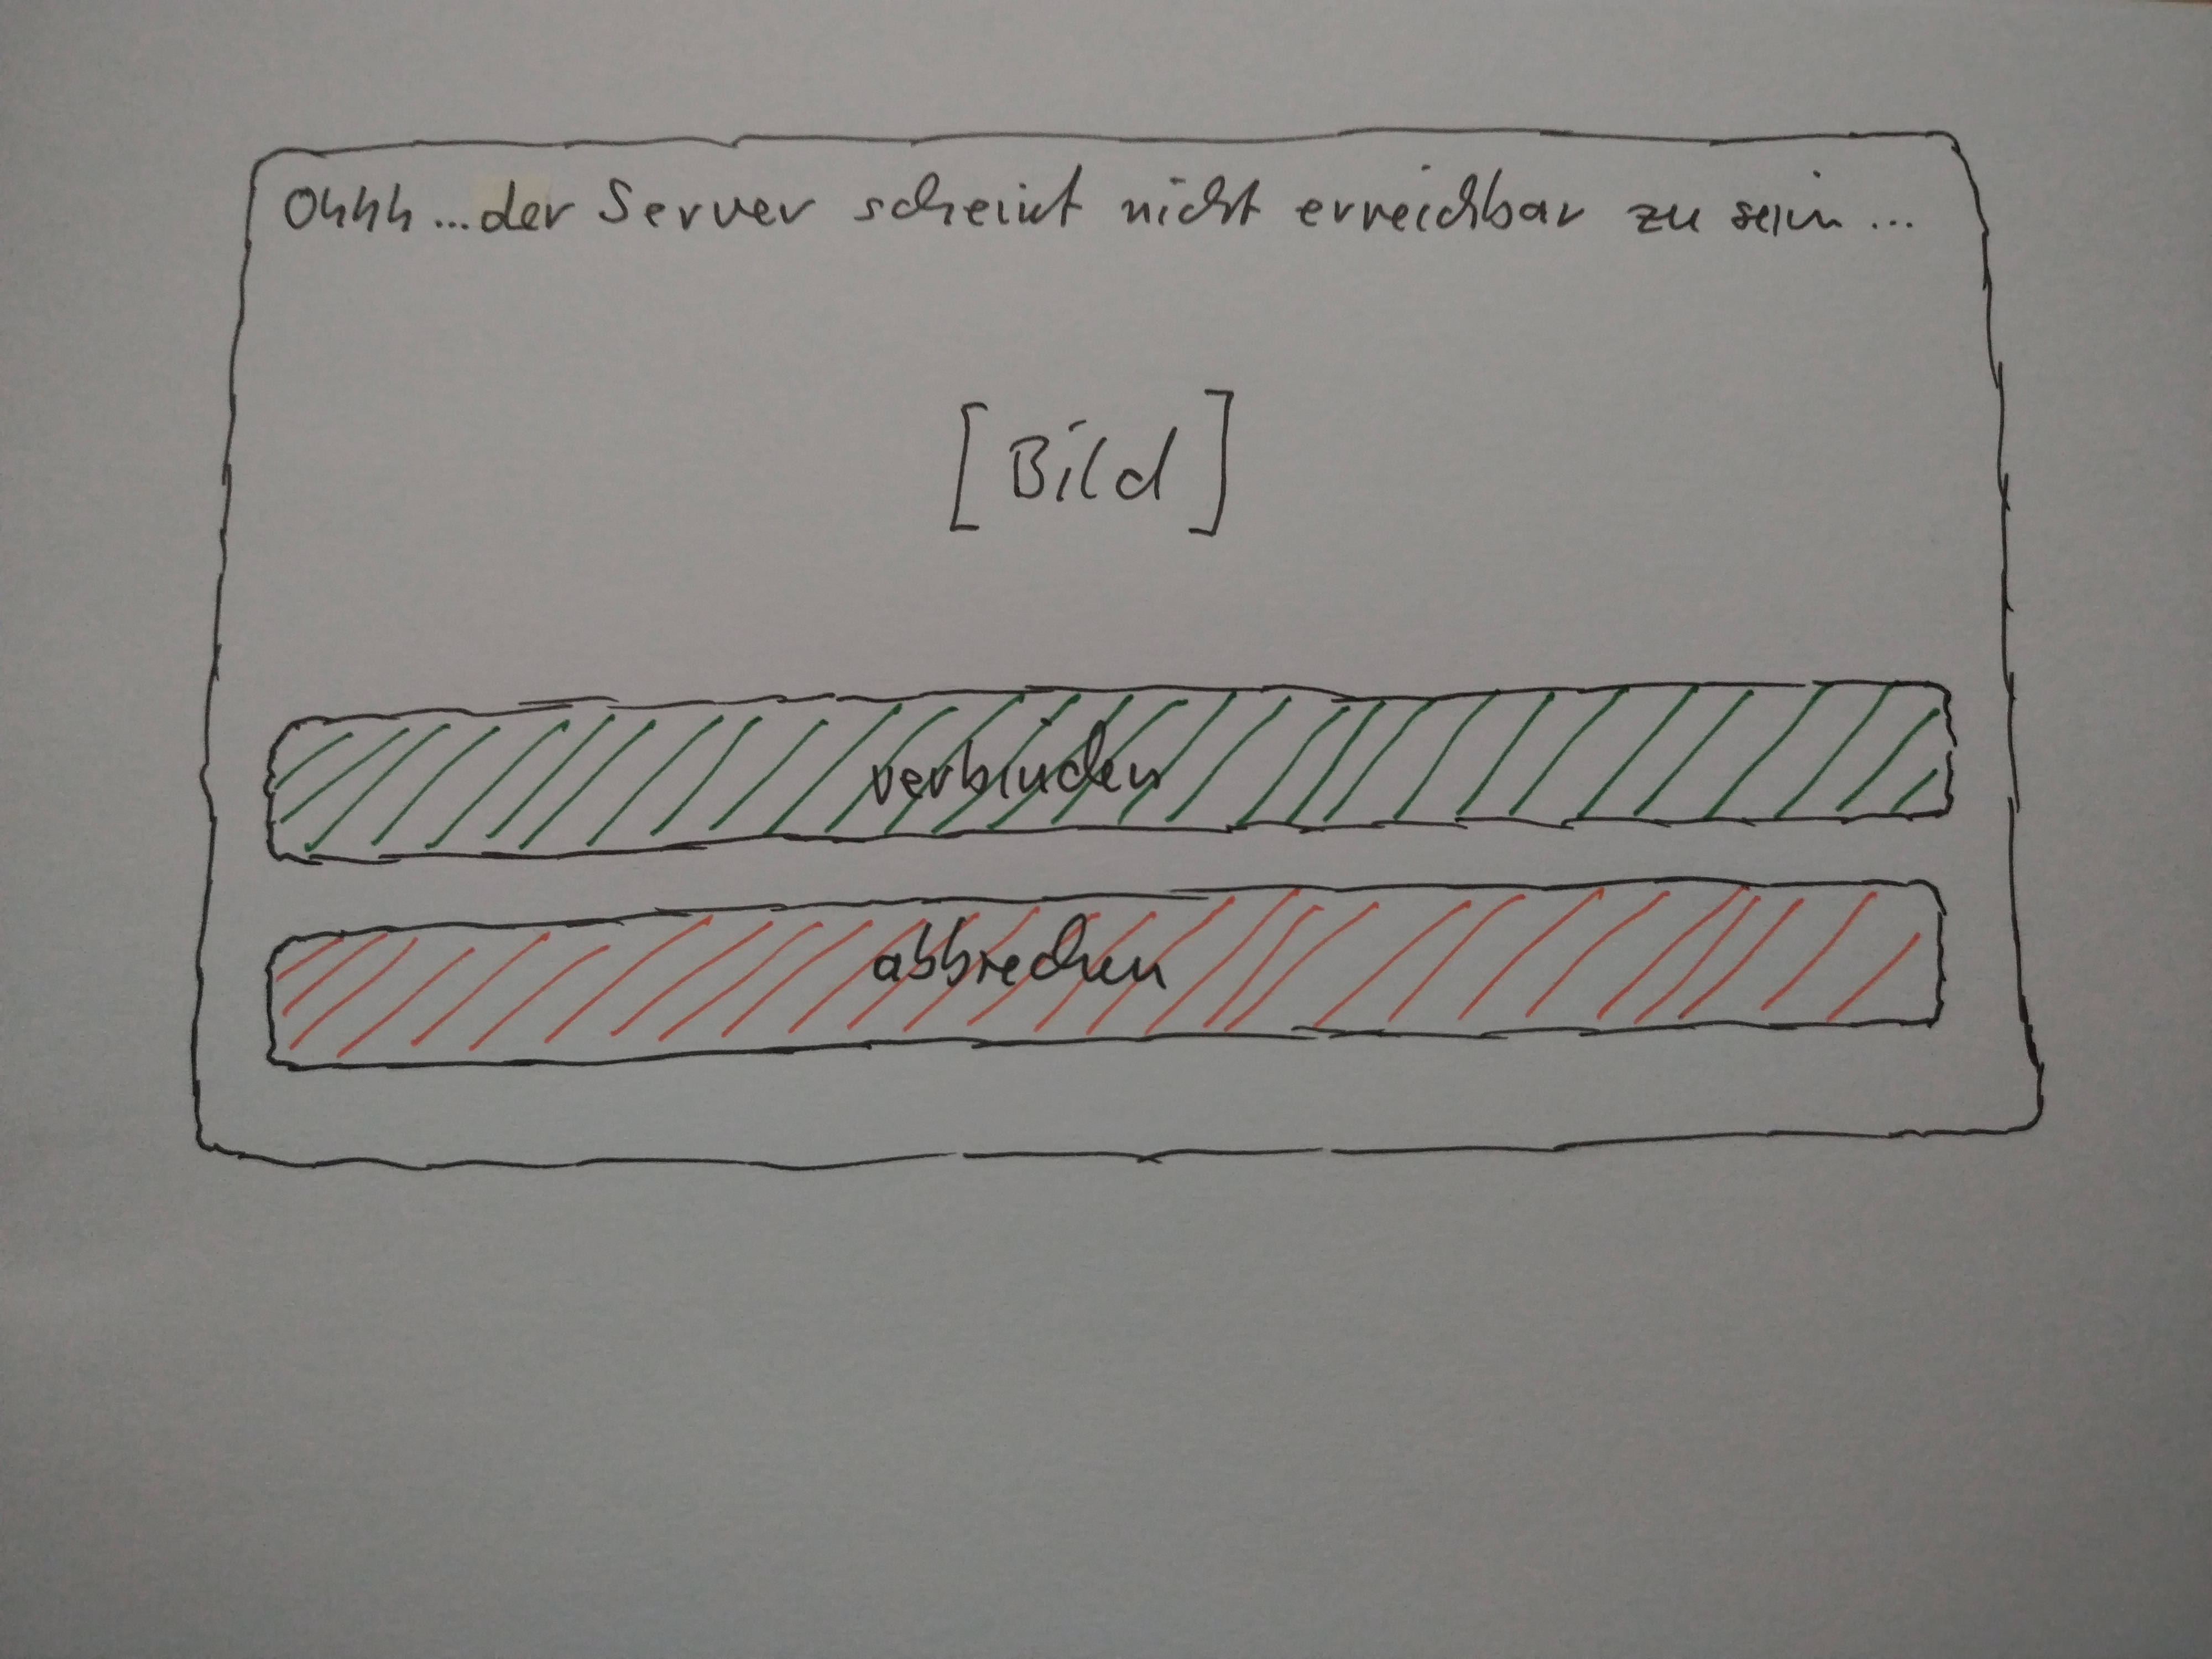 Ohhh...der Server scheint nicht erreichbar zu sein...
[Bild]
verbinden
abbrechen